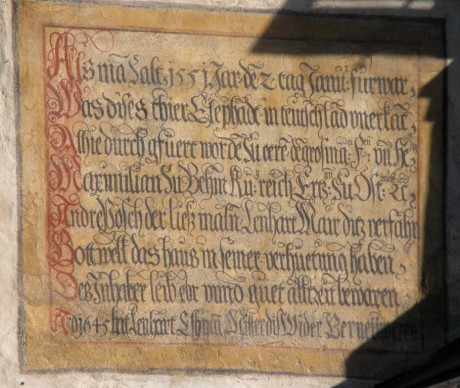 Als mā Zalt 1551 Jar de 2 tag Januÿ fürwar
Was dises thier Elephāde in teutschlād unerkāt
Alhie durch gfuert wordē Zu eere des großm
Maximilian Zu Behm Ku reich Ertz Zu Ost
Andre Posch der liess maln Lenhart Mair diz verfahn
Gott well das haus in seiner verhuetung haben
Des Inhaber leib ehr unnd guet allzeit bewaren
1645 hat Lenhart Wider Verneüern